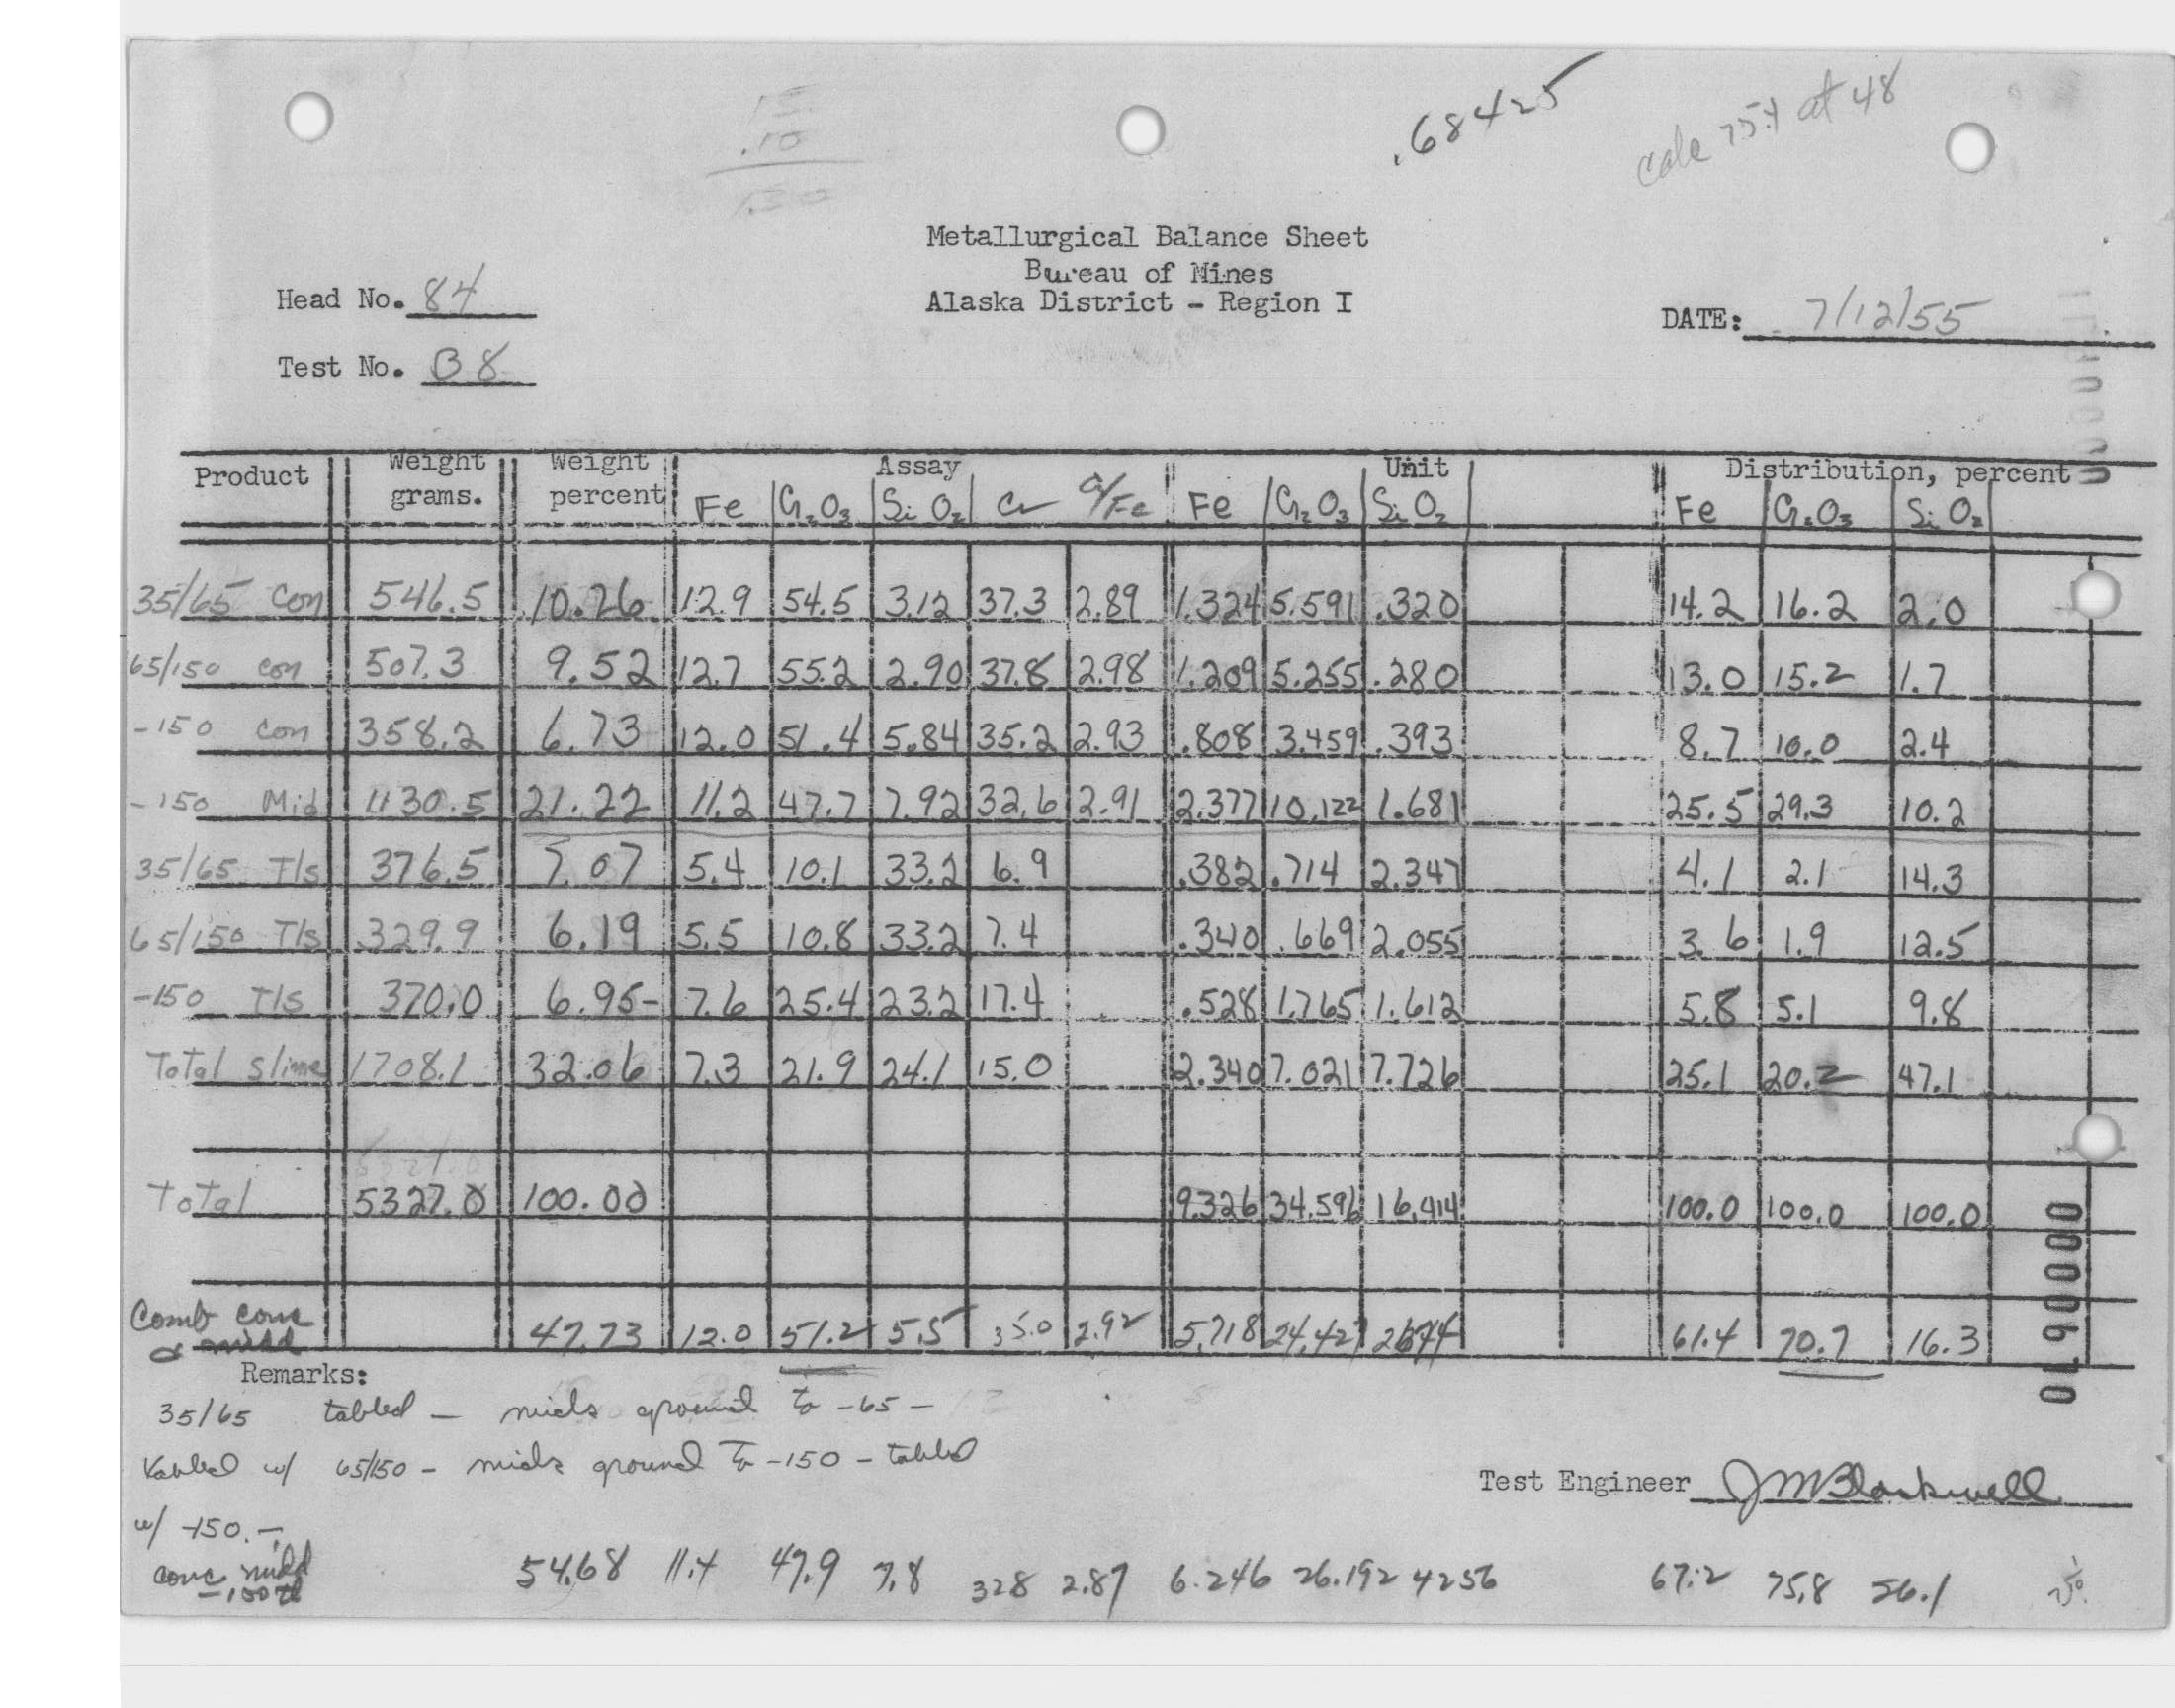 .68425
calc 75.4 at 48
15
.10
1.30
Metallurgical Balance Sheet
Bureau of Mines
Alaska District - Region I
Head No. 84
DATE: 7/12/55
Test No. B8
Product Weight grams. Weight percent Assay Unit Distribution, percent
Fe Cr₂O₃ SiO₂ Cr Cr/Fe Fe Cr₂O₃ SiO₂ Fe Cr₂O₃ SiO₂
35/65 Con 546.5 10.26 12.9 54.5 3.12 37.3 2.89 1.324 5.591 .320 14.2 16.2 2.0
65/150 con 507.3 9.52 12.7 55.2 2.90 37.8 2.98 1.209 5.255 .280 13.0 15.2 1.7
-150 Con 358.2 6.73 12.0 51.4 5.84 35.2 2.93 .808 3.459 .393 8.7 10.0 2.4
-150 Mid 1130.5 21.22 11.2 47.7 7.92 32.6 2.91 2.377 10.122 1.681 25.5 29.3 10.2
35/65 Tls 376.5 7.07 5.4 10.1 33.2 6.9 .382 .714 2.347 4.1 2.1 14.3
65/150 Tls 329.9 6.19 5.5 10.8 33.2 7.4 .340 .669 2.055 3.6 1.9 12.5
-150 Tls 370.0 6.95- 7.6 25.4 23.2 17.4 .528 1.765 1.612 5.8 5.1 9.8
Total Slime 1708.1 32.06 7.3 21.9 24.1 15.0 2.340 7.021 7.726 25.1 20.2 47.1
Total 5327.0 100.00 9.326 34.596 16.414 100.0 100.0 100.0
Comb conc & midd 47.73 12.0 51.2 5.5 35.0 2.92 5.718 24.427 2674 61.4 70.7 16.3
Remarks:
35/65 tabled - mids ground to -65 -
tabled w/ 65/150 - mids ground to -150 - tabled
Test Engineer JM Blackwell
w/ -150. -
conc midd -150 tl 54.68 11.4 47.9 7.8 328 2.87 6.246 26.192 4256 67.2 75.8 26.1
0000610